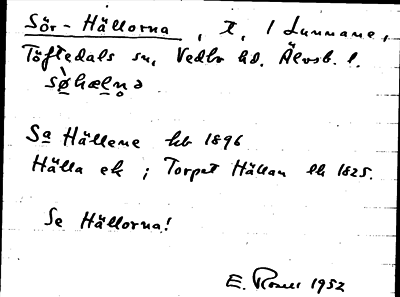 Sör-Hällorna, t, / Lunnane,
Töftedals sn, Vedbo hd. Älvsb. l.
sø̀hælṇə
Sa Hällene kb 1896
Hälla ek ; Torpet Hällan lk 1825.
Se Hällorna!
E. Rosell 1952